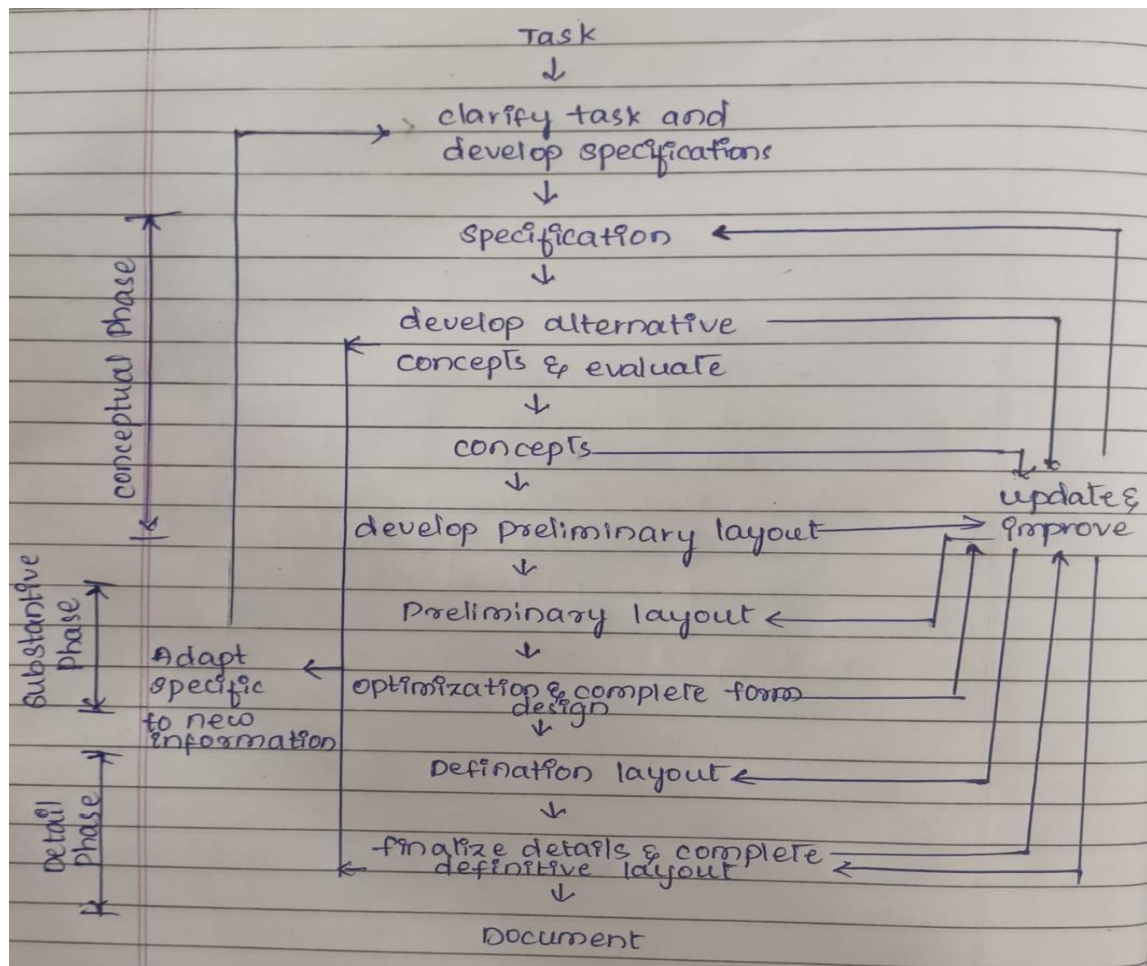 Task
clarify task and
develop specifications
specification
develop alternative
concepts & evaluate
concepts
update &
improve
develop preliminary layout
Preliminary layout
optimization & complete form
design
Defination layout
finalize details & complete
definitive layout
Document
conceptual phase
substantive
phase
Detail
phase
Adapt
specific
to new
information